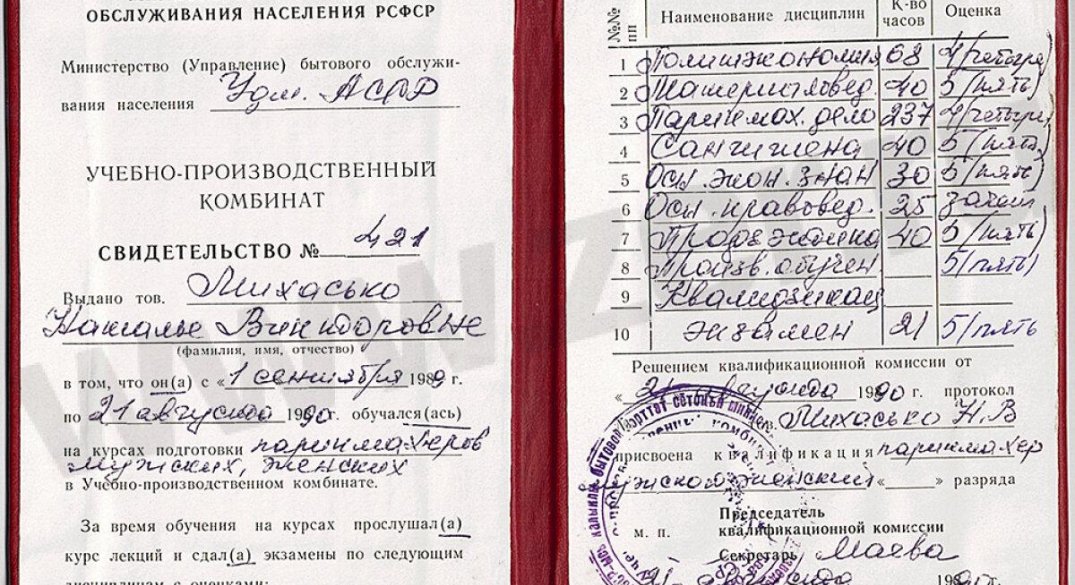 ОБСЛУЖИВАНИЯ НАСЕЛЕНИЯ РСФСР
Министерство (Управление) бытового обслужи-
вания населения Удм. АССР
УЧЕБНО-ПРОИЗВОДСТВЕННЫЙ
КОМБИНАТ
СВИДЕТЕЛЬСТВО № 421
Выдано тов. Михасько
Наталье Викторовне
(фамилия, имя, отчество)
в том, что он(а) с «1 сентября 1989 г.
по 21 августа 1990 г. обучался(ась)
на курсах подготовки парикмахеров
мужских, женских
в Учебно-производственном комбинате.
За время обучения на курсах прослушал(а)
курс лекций и сдал(а) экзамены по следующим
дисциплинам с оценками:
№№ пп Наименование дисциплин К-во часов Оценка
1 Политэкономия 68 4/четыре
2 Материаловед. 40 5 (пять)
3 Парикмах. дело 237 4/четыре
4 Сангигиена 40 5 (пять)
5 Осн. экон. знан 30 5 (пять)
6 Осн. правовед. 25 зачет
7 Профэтика 40 5 (пять)
8 Произв. обучен 5 (пять)
9 Квалификац
10 экзамен 21 5/пять
Решением квалификационной комиссии от
« 21 августа 1990 г. протокол
Михасько Н.В
присвоена квалификация парикмахер
мужской женский « » разряда
Председатель
м. п. квалификационной комиссии
Секретарь Маева
21 августа 199 г.